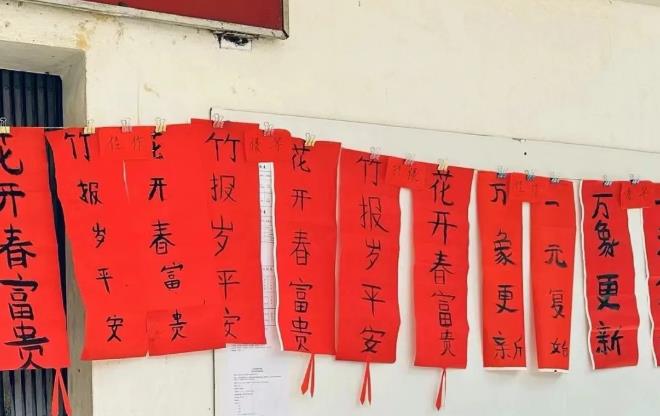 花开春富贵
竹报岁平安
佳作
花开春富贵
竹报岁平安
花开春富贵
竹报岁平安
花开春富贵
万象更新
一元复始
万象更新